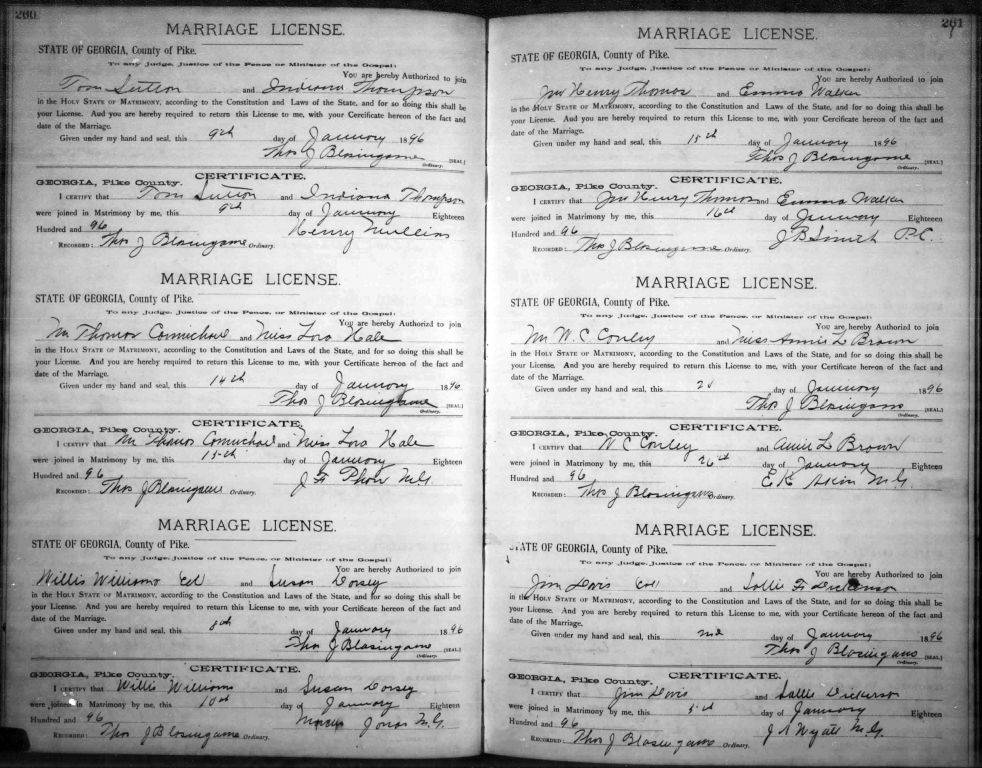 260
MARRIAGE LICENSE.
STATE OF GEORGIA, County of Pike.
To any Judge, Justice of the Peace or Minister of the Gospel:
You are hereby Authorized to join
Tom Sutton and Indiana Thompson
in the HOLY STATE OF MATRIMONY, according to the Constitution and Laws of the State, and for so doing this shall be
your License. And you are hereby required to return this License to me, with your Certificate hereon of the fact and
date of the Marriage.
Given under my hand and seal, this 9th day of January 1896
Thos J Blasingame [SEAL]
Ordinary.
CERTIFICATE.
GEORGIA, Pike County.
I CERTIFY that Tom Sutton and Indiana Thompson
were joined in Matrimony by me, this 9th day of January Eighteen
Hundred and 96 Henry Mullins
RECORDED: Thos J Blasingame Ordinary.
MARRIAGE LICENSE.
STATE OF GEORGIA, County of Pike.
To any Judge, Justice of the Peace, or Minister of the Gospel:
You are hereby Authorized to join
Mr Thomas Carmichael and Miss Lora Hale
in the HOLY STATE OF MATRIMONY, according to the Constitution and Laws of the State, and for so doing this shall be
your License. And you are hereby required to return this License to me, with your Certificate hereon of the fact and
date of the Marriage.
Given under my hand and seal, this 14th day of January 1896
Thos J Blasingame [SEAL]
Ordinary.
CERTIFICATE.
GEORGIA, Pike County.
I CERTIFY that Mr Thomas Carmichael and Miss Lora Hale
were joined in Matrimony by me, this 15th day of January Eighteen
Hundred and 96 M.G.
RECORDED: Thos J Blasingame Ordinary.
MARRIAGE LICENSE.
STATE OF GEORGIA, County of Pike.
To any Judge, Justice of the Peace, or Minister of the Gospel:
You are hereby Authorized to join
Willis Williams Col and Susan Dorsey
in the HOLY STATE OF MATRIMONY, according to the Constitution and Laws of the State, and for so doing this shall be
your License. And you are hereby required to return this License to me, with your Certificate hereon of the fact and
date of the Marriage.
Given under my hand and seal, this 8th day of January 1896
Thos J Blasingame [SEAL]
Ordinary.
CERTIFICATE.
GEORGIA, Pike County.
I CERTIFY that Willis Williams and Susan Dorsey
were joined in Matrimony by me, this 10th day of January Eighteen
Hundred and 96 Jonas M.G.
RECORDED: Thos J Blasingame Ordinary.
261
MARRIAGE LICENSE.
STATE OF GEORGIA, County of Pike.
To any Judge, Justice of the Peace or Minister of the Gospel:
You are hereby Authorized to join
Jno Henry Thomas and Emma Walker
in the HOLY STATE OF MATRIMONY, according to the Constitution and Laws of the State, and for so doing this shall be
your License. And you are hereby required to return this License to me, with your Certificate hereon of the fact and
date of the Marriage.
Given under my hand and seal, this 15th day of January 1896
Thos J Blasingame [SEAL]
Ordinary.
CERTIFICATE.
GEORGIA, Pike County.
I CERTIFY that Jno Henry Thomas and Emma Walker
were joined in Matrimony by me, this 16th day of January Eighteen
Hundred and 96 J B Smith P.C.
RECORDED: Thos J Blasingame Ordinary.
MARRIAGE LICENSE.
STATE OF GEORGIA, County of Pike.
To any Judge, Justice of the Peace, or Minister of the Gospel:
You are hereby Authorized to join
Mr W. C Conley and Miss Annie L Brown
in the HOLY STATE OF MATRIMONY, according to the Constitution and Laws of the State, and for so doing this shall be
your License. And you are hereby required to return this License to me, with your Certificate hereon of the fact and
date of the Marriage.
Given under my hand and seal, this day of January 1896
Thos J Blasingame [SEAL]
Ordinary.
CERTIFICATE.
GEORGIA, Pike County.
I CERTIFY that W C Conley and Annie L Brown
were joined in Matrimony by me, this 26th day of January Eighteen
Hundred and 96 E K Akin M.G.
RECORDED: Thos J Blasingame Ordinary.
MARRIAGE LICENSE.
STATE OF GEORGIA, County of Pike.
To any Judge, Justice of the Peace, or Minister of the Gospel:
You are hereby Authorized to join
Jim Davis Col and Sallie F Dickerson
in the HOLY STATE OF MATRIMONY, according to the Constitution and Laws of the State, and for so doing this shall be
your License. And you are hereby required to return this License to me, with your Certificate hereon of the fact and
date of the Marriage.
Given under my hand and seal, this 2nd day of January 1896
Thos J Blasingame [SEAL]
Ordinary.
CERTIFICATE.
GEORGIA, Pike County.
I CERTIFY that Jim Davis and Sallie Dickerson
were joined in Matrimony by me, this 5th day of January Eighteen
Hundred and 96 J A Wyatt M.G.
RECORDED: Thos J Blasingame Ordinary.